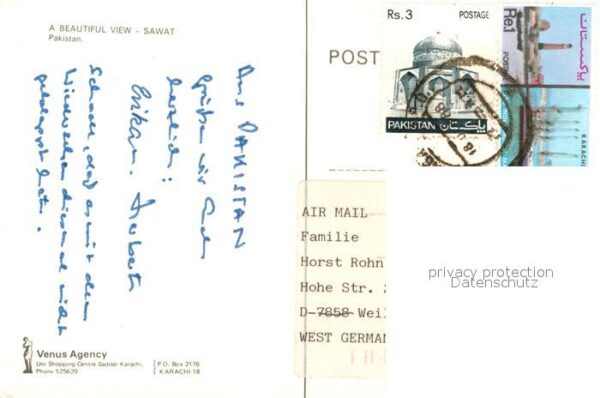 A BEAUTIFUL VIEW - SAWAT
Pakistan.
Aus PAKISTAN
grüßen wir Euch
herzlich!
Erika u. Herbert
Schade, daß es mit dem
Wiedersehen diesmal nicht
geklappt hat.
Venus Agency
Uni Shopping Centre Saddar Karachi
Phone 525629
P.O. Box 2176
KARACHI-18
POST
Rs.3 POSTAGE
PAKISTAN پاکستان
Re1
پاکستان
KARACHI
AIR MAIL
Familie
Horst Rohn
Hohe Str.
D-7858 Weil
WEST GERMAN
privacy protection
Datenschutz